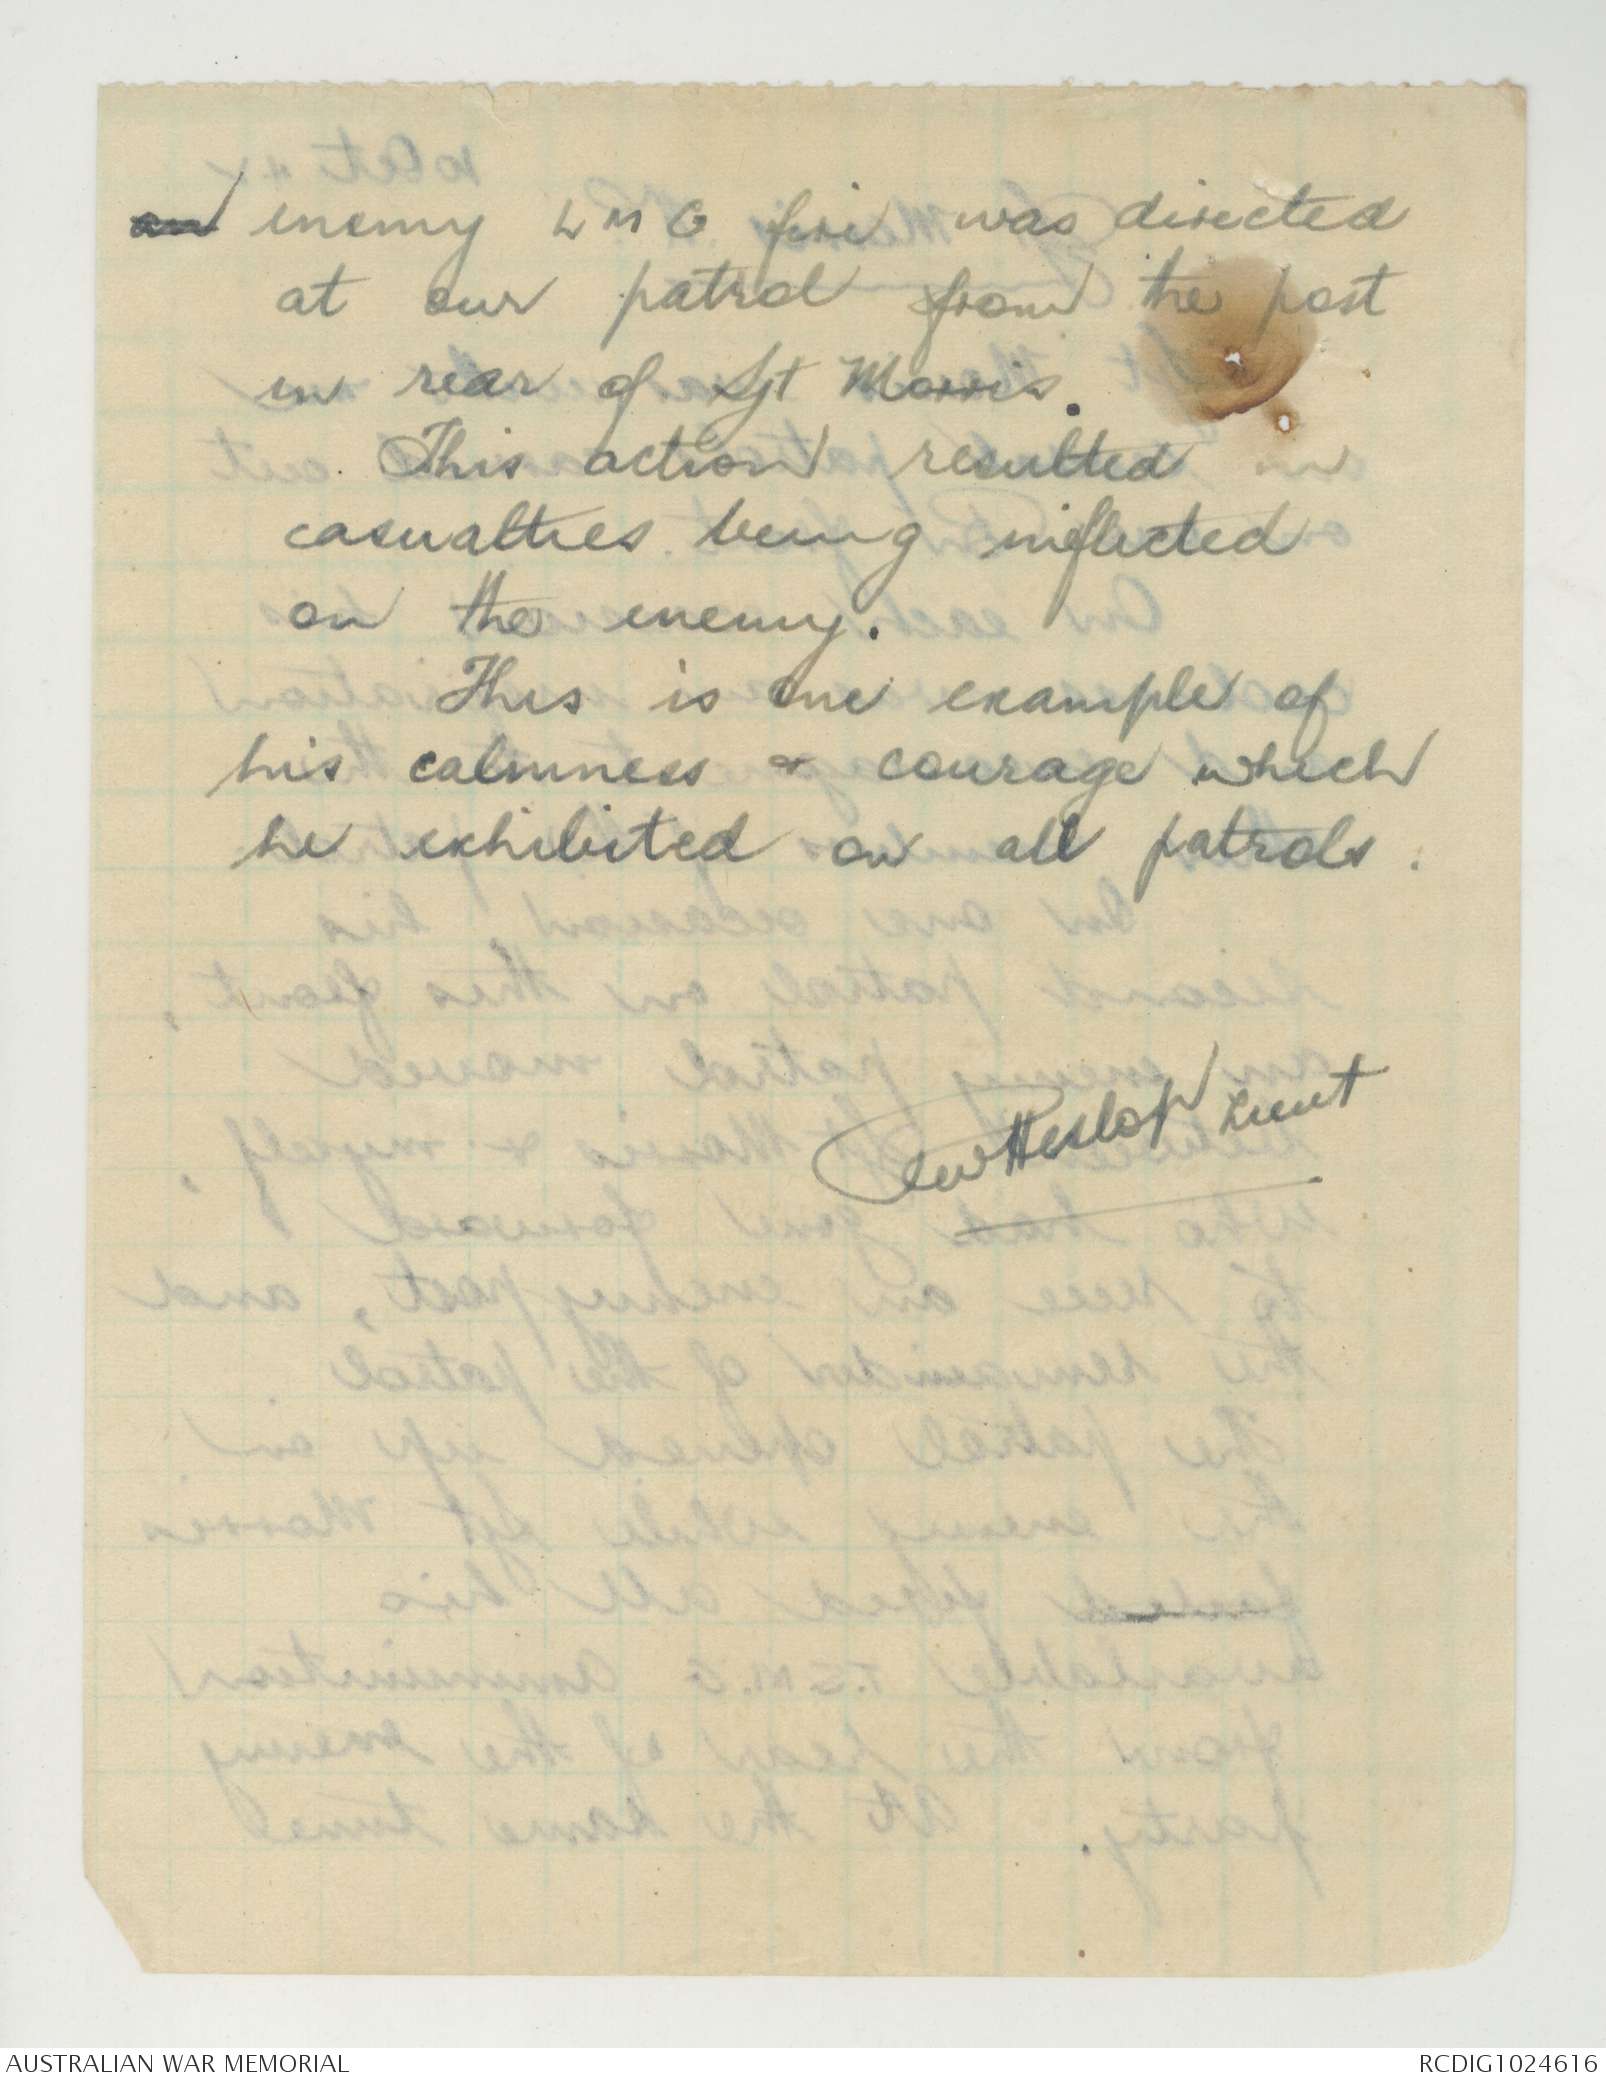 an enemy LMG fire was directed
at our patrol from the post
in rear of Sgt Morris.
This action resulted
casualties being inflicted
on the enemy.
This is one example of
his calmness & courage which
he exhibited on all patrols.
Heslop Lieut
AUSTRALIAN WAR MEMORIAL
RCDIG1024616